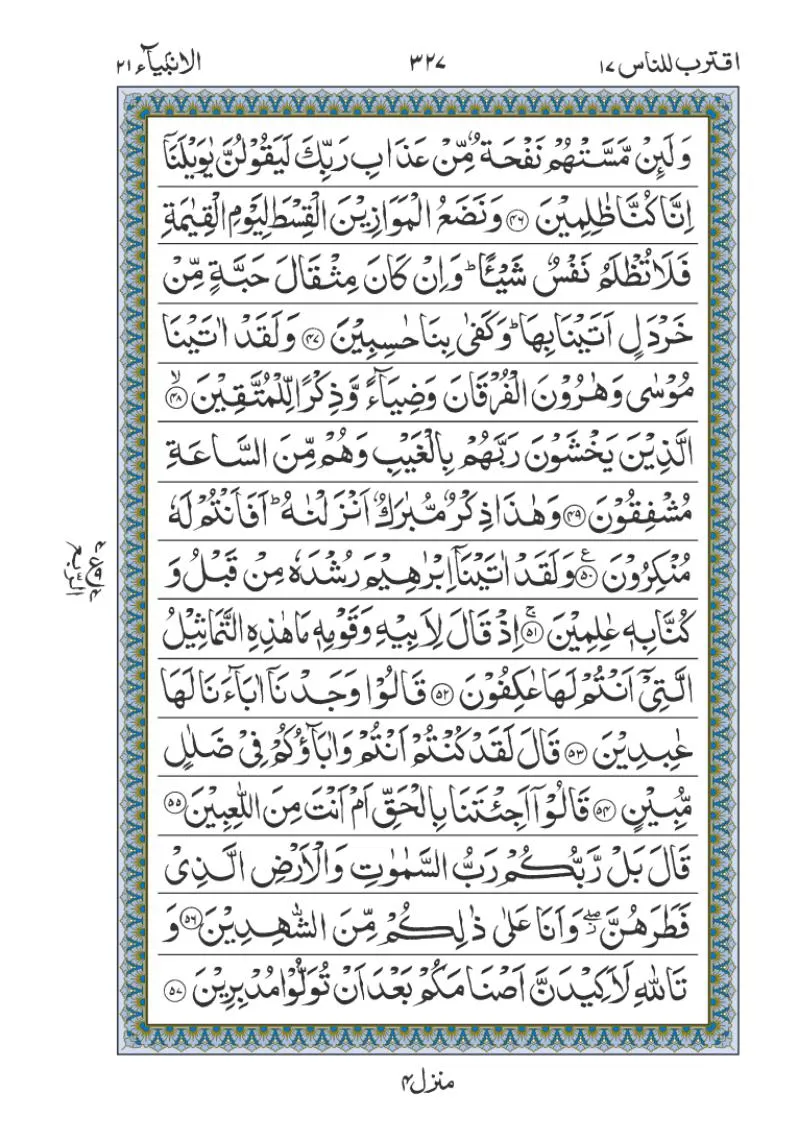 اقترب للناس ۱۷ ۳۲۷ الانبیآء ۲۱
وَلَئِنۡ مَّسَّتۡهُمۡ نَفۡحَةٌ مِّنۡ عَذَابِ رَبِّكَ لَيَقُوۡلُنَّ يٰوَيۡلَنَاۤ
اِنَّا كُنَّا ظٰلِمِيۡنَ ﴿۴۶﴾ وَنَضَعُ الۡمَوَازِيۡنَ الۡقِسۡطَ لِيَوۡمِ الۡقِيٰمَةِ
فَلَا تُظۡلَمُ نَفۡسٌ شَيۡـًٔا ؕ وَاِنۡ كَانَ مِثۡقَالَ حَبَّةٍ مِّنۡ
خَرۡدَلٍ اَتَيۡنَا بِهَا ؕ وَكَفٰى بِنَا حٰسِبِيۡنَ ﴿۴۷﴾ وَلَقَدۡ اٰتَيۡنَا
مُوۡسٰى وَهٰرُوۡنَ الۡفُرۡقَانَ وَضِيَآءً وَّذِكۡرًا لِّلۡمُتَّقِيۡنَ ۙ﴿۴۸﴾
الَّذِيۡنَ يَخۡشَوۡنَ رَبَّهُمۡ بِالۡغَيۡبِ وَهُمۡ مِّنَ السَّاعَةِ
مُشۡفِقُوۡنَ ﴿۴۹﴾ وَهٰذَا ذِكۡرٌ مُّبٰرَكٌ اَنۡزَلۡنٰهُ ؕ اَفَاَنۡتُمۡ لَهٗ
مُنۡكِرُوۡنَ ﴿۵۰﴾ۧ وَلَقَدۡ اٰتَيۡنَاۤ اِبۡرٰهِيۡمَ رُشۡدَهٗ مِنۡ قَبۡلُ وَ
كُنَّا بِهٖ عٰلِمِيۡنَ ۚ﴿۵۱﴾ اِذۡ قَالَ لِاَبِيۡهِ وَقَوۡمِهٖ مَا هٰذِهِ التَّمَاثِيۡلُ
الَّتِىۡۤ اَنۡتُمۡ لَهَا عٰكِفُوۡنَ ﴿۵۲﴾ قَالُوۡا وَجَدۡنَاۤ اٰبَآءَنَا لَهَا
عٰبِدِيۡنَ ﴿۵۳﴾ قَالَ لَقَدۡ كُنۡتُمۡ اَنۡتُمۡ وَاٰبَآؤُكُمۡ فِىۡ ضَلٰلٍ
مُّبِيۡنٍ ﴿۵۴﴾ قَالُوۡۤا اَجِئۡتَنَا بِالۡحَقِّ اَمۡ اَنۡتَ مِنَ اللّٰعِبِيۡنَ ﴿۵۵﴾
قَالَ بَلۡ رَّبُّكُمۡ رَبُّ السَّمٰوٰتِ وَالۡاَرۡضِ الَّذِىۡ
فَطَرَهُنَّ ۖ وَاَنَا عَلٰى ذٰلِكُمۡ مِّنَ الشّٰهِدِيۡنَ ﴿۵۶﴾ وَ
تَاللّٰهِ لَاَكِيۡدَنَّ اَصۡنَامَكُمۡ بَعۡدَ اَنۡ تُوَلُّوۡا مُدۡبِرِيۡنَ ﴿۵۷﴾
منزل ۴